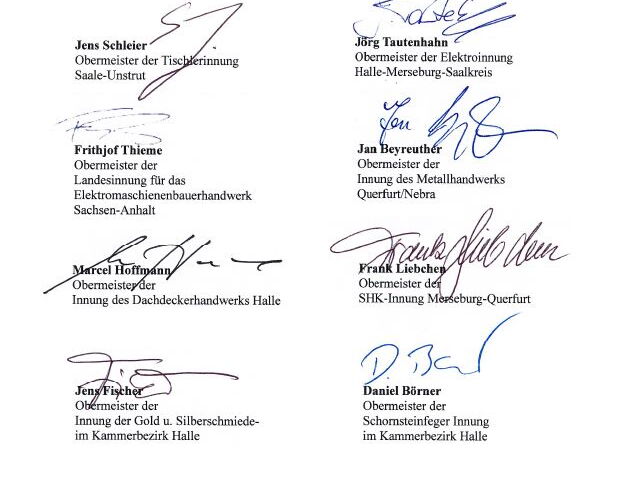 Jens Schleier
Obermeister der Tischlerinnung
Saale-Unstrut
Jörg Tautenhahn
Obermeister der Elektroinnung
Halle-Merseburg-Saalkreis
Frithjof Thieme
Obermeister der
Landesinnung für das
Elektromaschienenbauerhandwerk
Sachsen-Anhalt
Jan Beyreuther
Obermeister der
Innung des Metallhandwerks
Querfurt/Nebra
Marcel Hoffmann
Obermeister der
Innung des Dachdeckerhandwerks Halle
Frank Liebchen
Frank Liebchen
Obermeister der
SHK-Innung Merseburg-Querfurt
Jens Fischer
Obermeister der
Innung der Gold u. Silberschmiede-
im Kammerbezirk Halle
D. Bör
Daniel Börner
Obermeister der
Schornsteinfeger Innung
im Kammerbezirk Halle